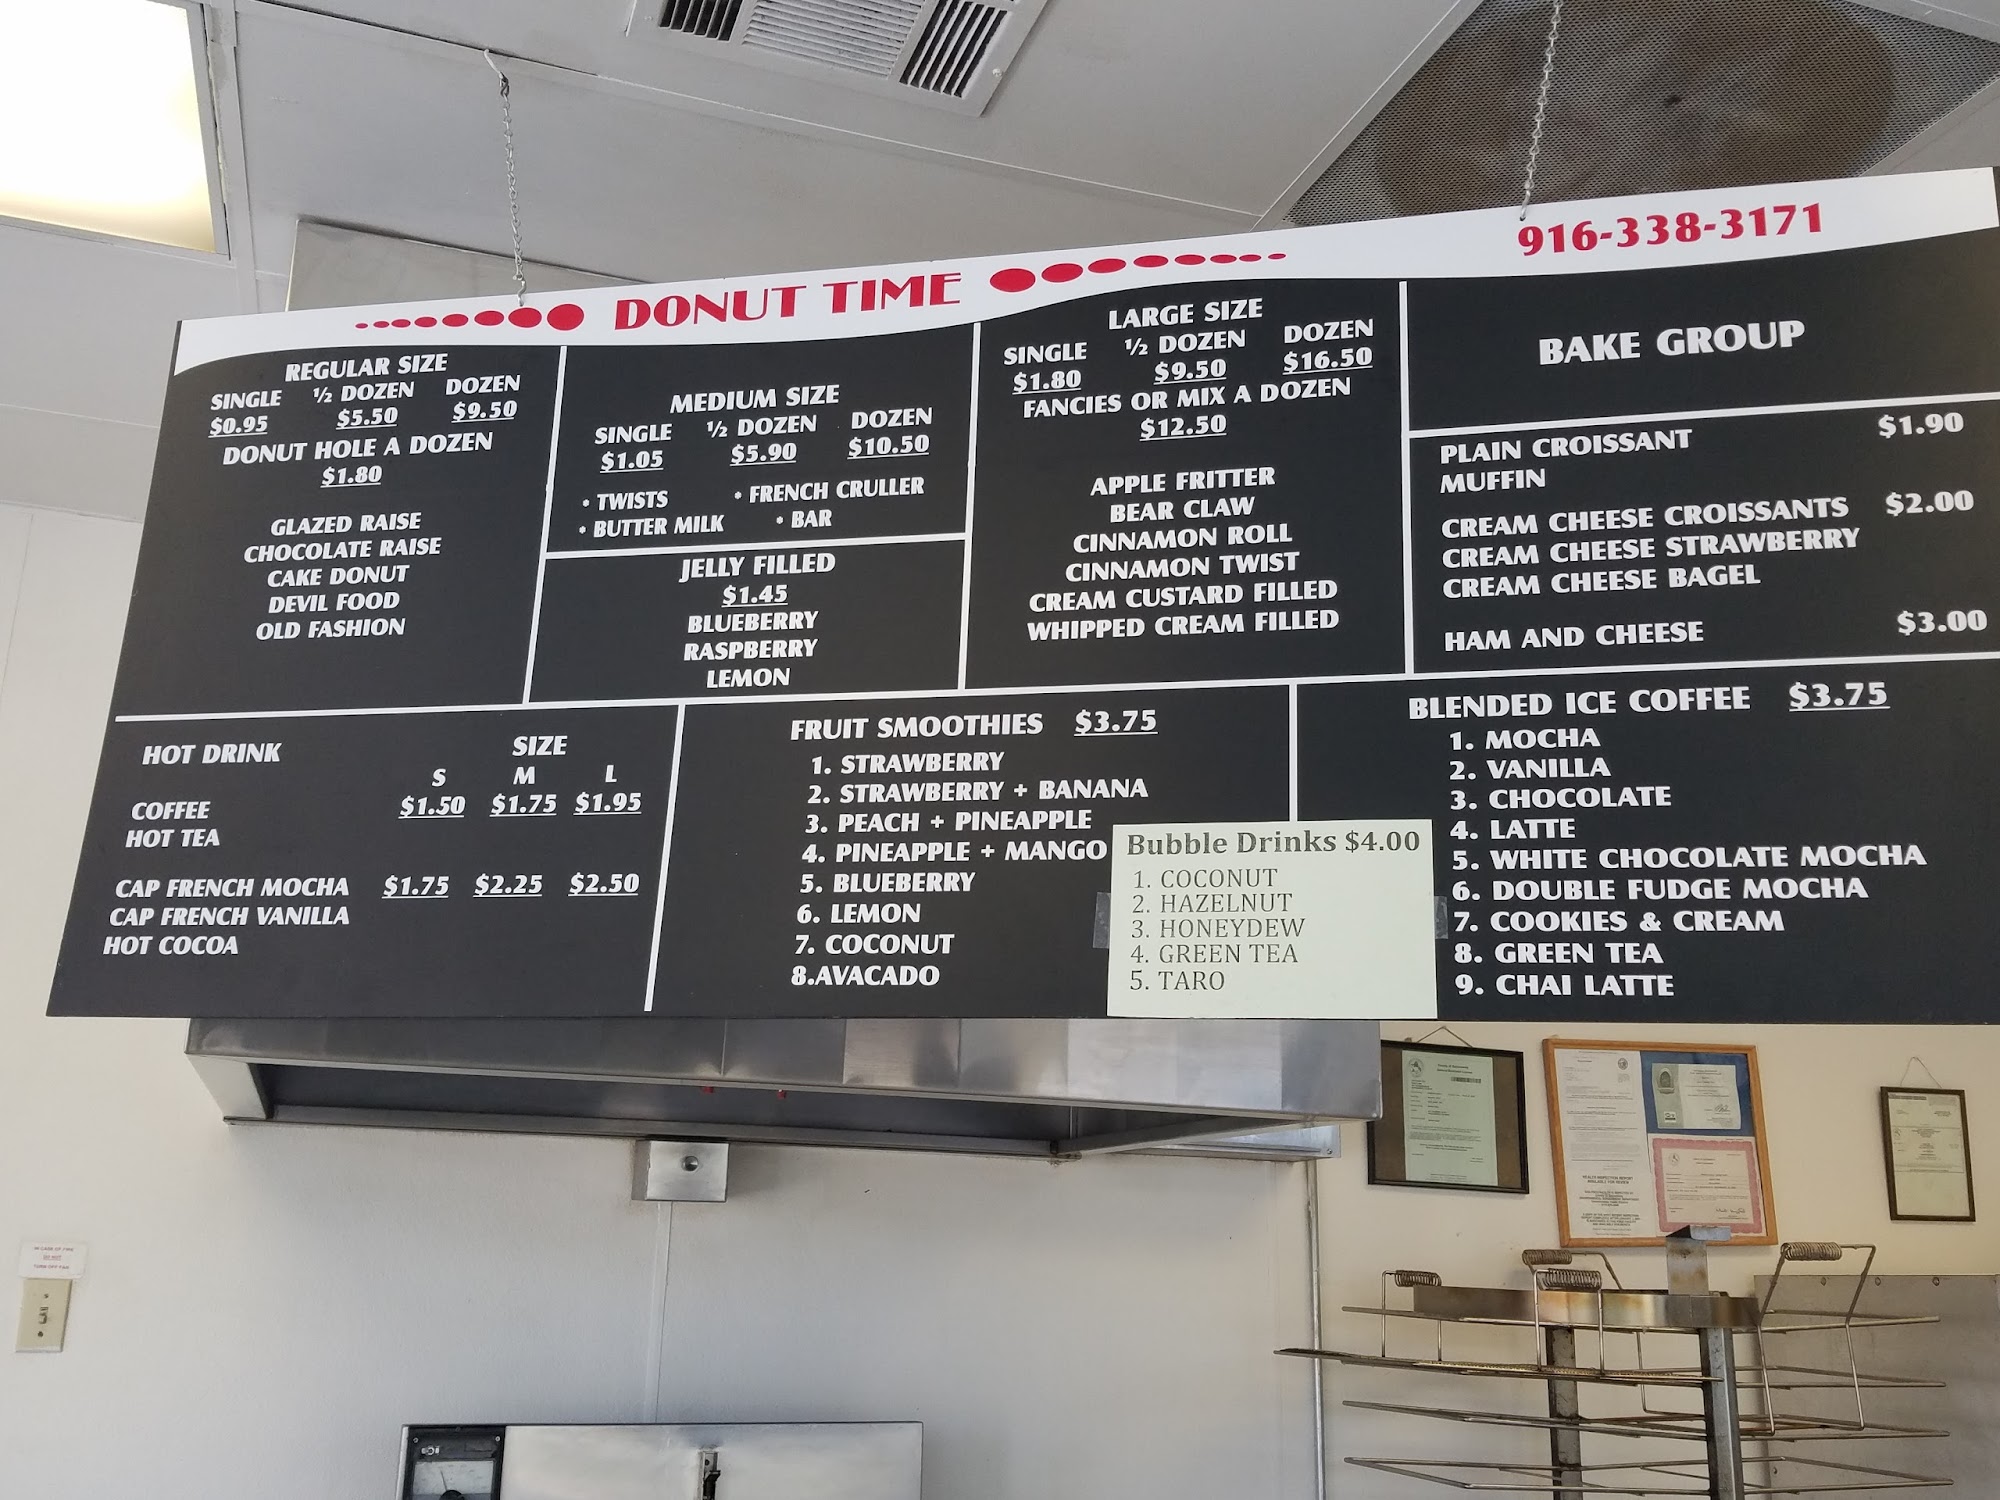 DONUT TIME
916-338-3171
REGULAR SIZE
SINGLE ½ DOZEN DOZEN
$0.95 $5.50 $9.50
DONUT HOLE A DOZEN
$1.80
GLAZED RAISE
CHOCOLATE RAISE
CAKE DONUT
DEVIL FOOD
OLD FASHION
MEDIUM SIZE
SINGLE ½ DOZEN DOZEN
$1.05 $5.90 $10.50
* TWISTS * FRENCH CRULLER
* BUTTER MILK * BAR
JELLY FILLED
$1.45
BLUEBERRY
RASPBERRY
LEMON
LARGE SIZE
SINGLE ½ DOZEN DOZEN
$1.80 $9.50 $16.50
FANCIES OR MIX A DOZEN
$12.50
APPLE FRITTER
BEAR CLAW
CINNAMON ROLL
CINNAMON TWIST
CREAM CUSTARD FILLED
WHIPPED CREAM FILLED
BAKE GROUP
PLAIN CROISSANT $1.90
MUFFIN
CREAM CHEESE CROISSANTS $2.00
CREAM CHEESE STRAWBERRY
CREAM CHEESE BAGEL
HAM AND CHEESE $3.00
HOT DRINK SIZE
S M L
COFFEE $1.50 $1.75 $1.95
HOT TEA
CAP FRENCH MOCHA $1.75 $2.25 $2.50
CAP FRENCH VANILLA
HOT COCOA
FRUIT SMOOTHIES $3.75
1. STRAWBERRY
2. STRAWBERRY + BANANA
3. PEACH + PINEAPPLE
4. PINEAPPLE + MANGO
5. BLUEBERRY
6. LEMON
7. COCONUT
8.AVACADO
Bubble Drinks $4.00
1. COCONUT
2. HAZELNUT
3. HONEYDEW
4. GREEN TEA
5. TARO
BLENDED ICE COFFEE $3.75
1. MOCHA
2. VANILLA
3. CHOCOLATE
4. LATTE
5. WHITE CHOCOLATE MOCHA
6. DOUBLE FUDGE MOCHA
7. COOKIES & CREAM
8. GREEN TEA
9. CHAI LATTE
IN CASE OF FIRE
DO NOT
TURN OFF FAN
HEALTH INSPECTION REPORT
AVAILABLE FOR REVIEW